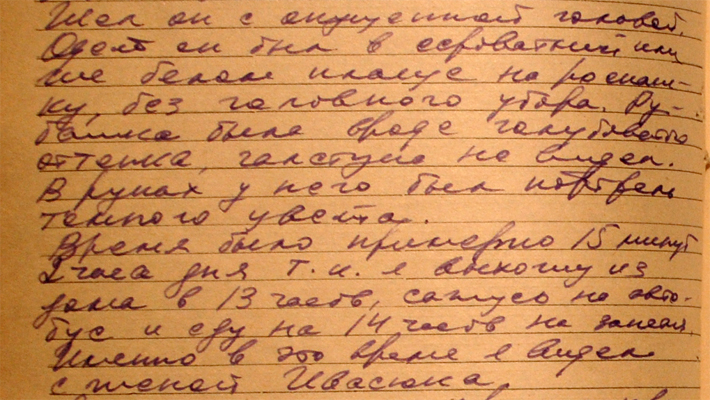 Шел он с опущенной головой.
Одет он был в сероватый или
же белом плаще на роспаш-
ку, без головного убора. Ру-
башка была вроде голубоватого
оттенка, галстука не видел.
В руках у него был портфель
темного цвета.
Время было примерно 15 минут
2 часа дня т.к. я выхожу из
дома в 13 часов, сажусь на авто-
бус и еду на 14 часов на занятия.
Именно в это время я видел
с женой Ивасюка.